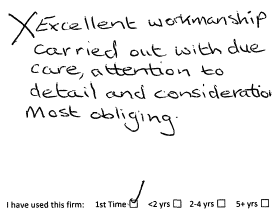 Excellent workmanship
carried out with due
care, attention to
detail and consideration
Most obliging.
I have used this firm: 1st Time ☑ <2 yrs ☐ 2-4 yrs ☐ 5+ yrs ☐